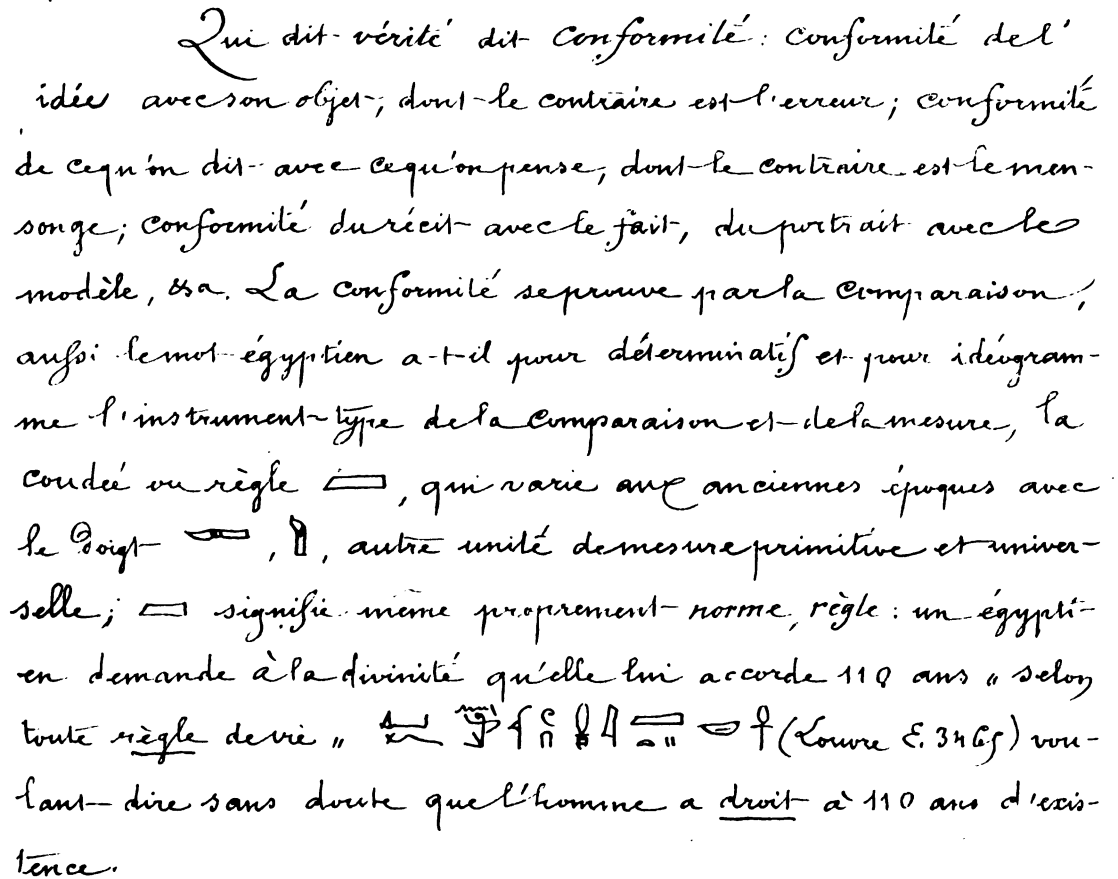 Qui dit vérité dit conformité : conformité de l'
idée avec son objet, dont le contraire est l'erreur ; conformité
de ce qu'on dit avec ce qu'on pense, dont le contraire est le men-
songe ; conformité du récit avec le fait, du portrait avec le
modèle, &a. La conformité se prouve par la comparaison,
aussi le mot égyptien a-t-il pour déterminatif et pour idéogram-
me l'instrument-type de la comparaison et de la mesure, la
coudée ou règle , qui varie aux anciennes époques avec
le doigt , , autre unité de mesure primitive et univer-
selle ; signifie même proprement norme, règle : un égypti-
en demande à la divinité qu'elle lui accorde 110 ans „ selon
toute règle de vie „ (Louvre E. 3465) vou-
lant dire sans doute que l'homme a droit à 110 ans d'exis-
tence.